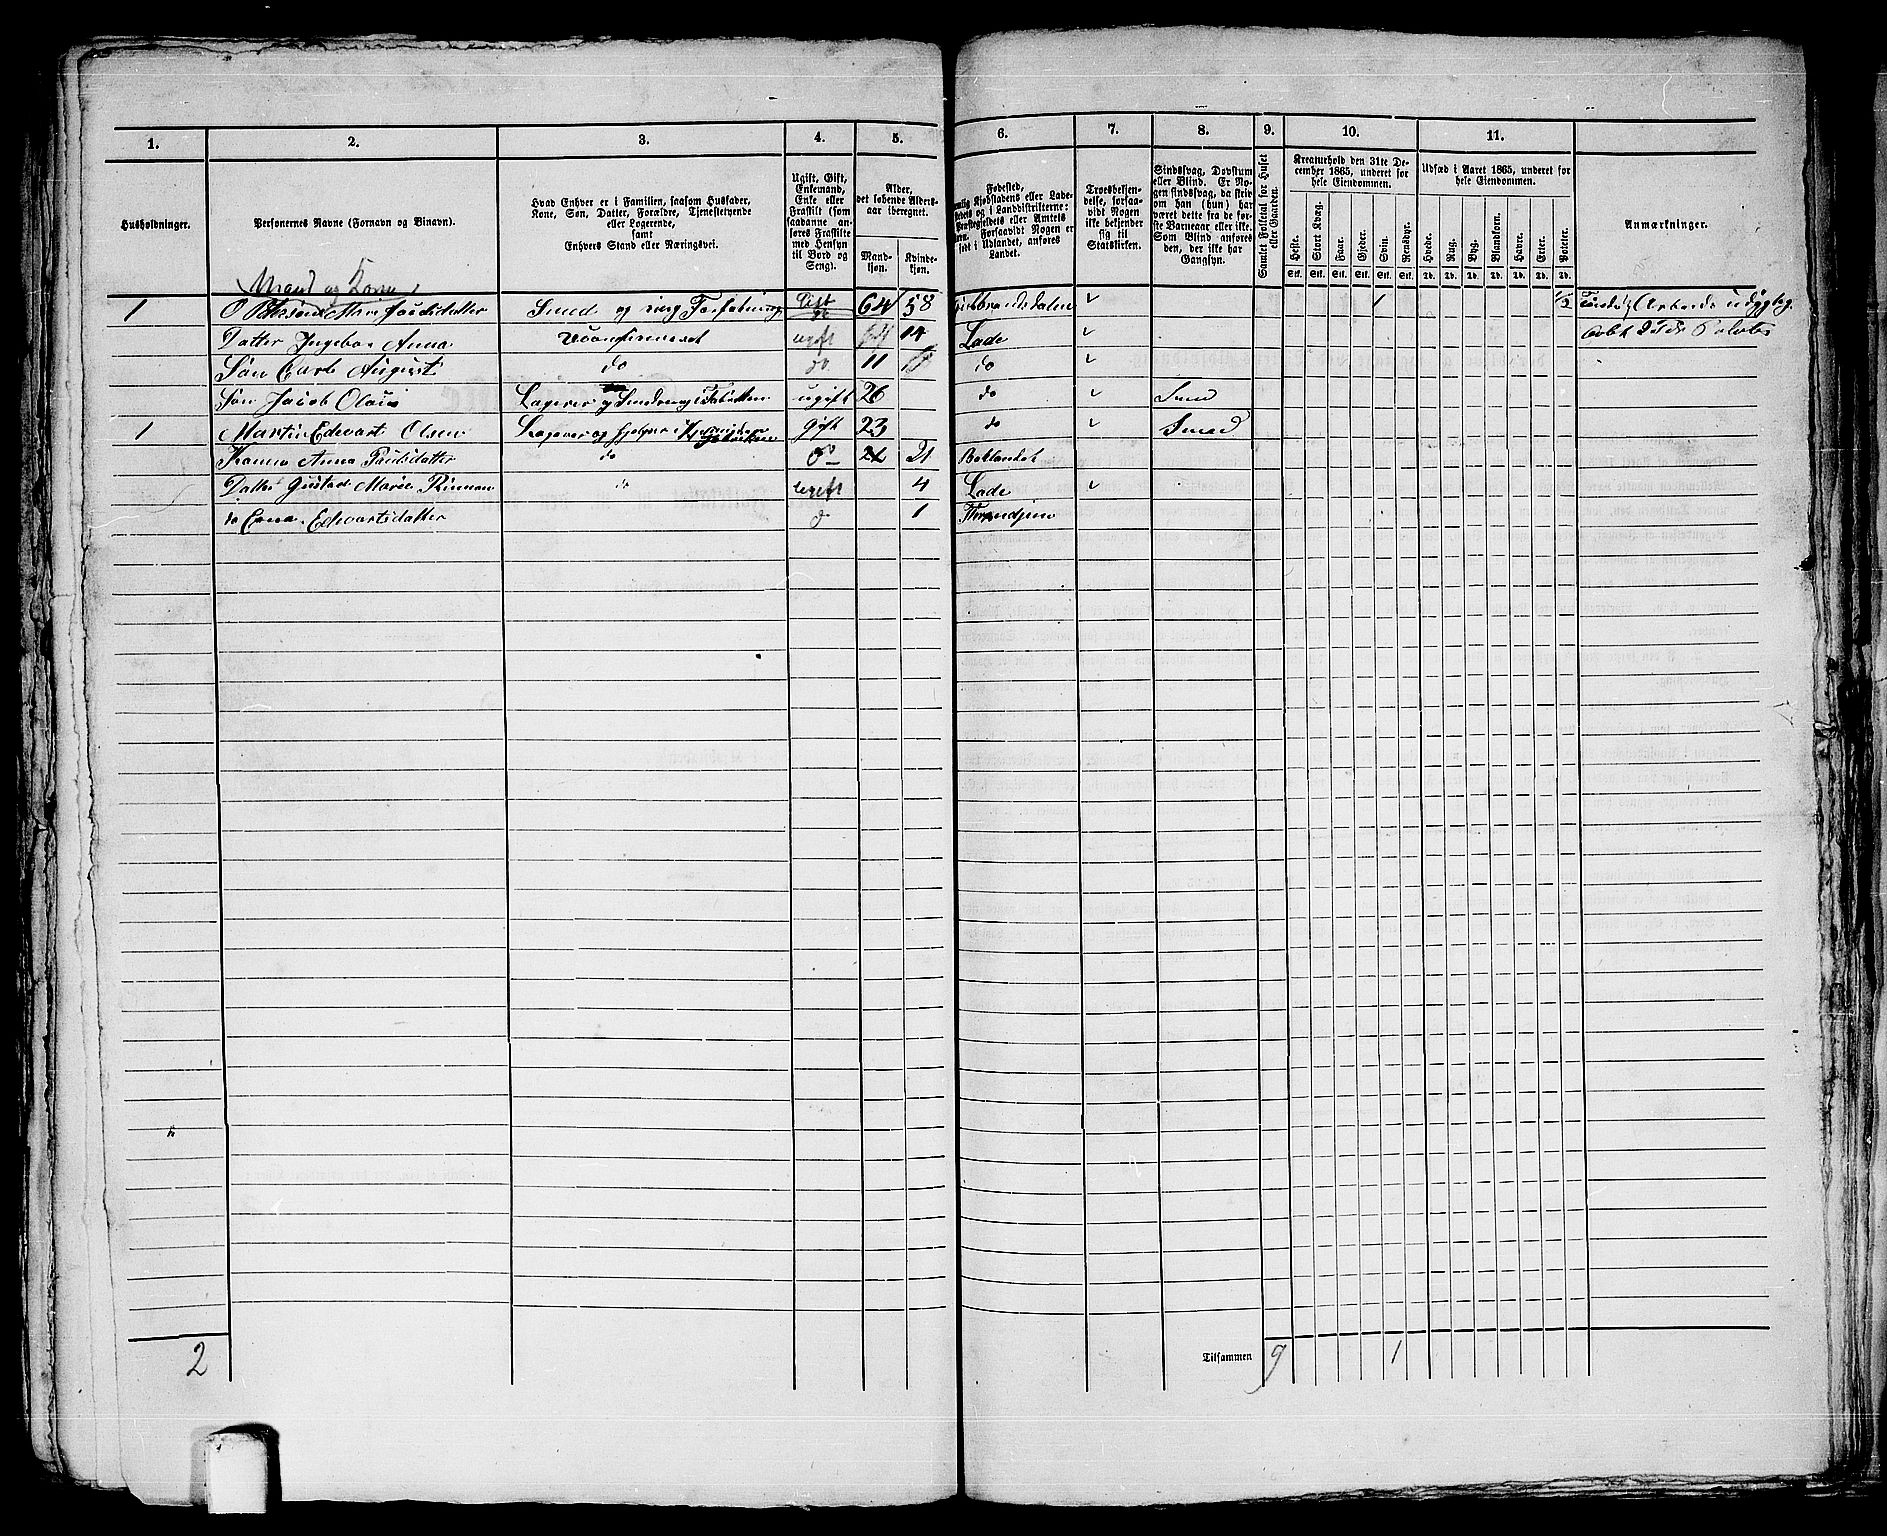 1. 2. 3. 4. 5. 6. 7. 8. 9. 10. 11.
Husholdninger.
Personernes Navne (Fornavn og Binavn).
Hvad Enhver er i Familien, saasom Husfader,
Kone, Søn, Datter, Forældre, Tjenestetyende
eller Logerende,
samt
Enhvers Stand eller Næringsvei.
Ugift, Gift,
Enkemand,
Enke eller
Fraskilt (som
saadanne an-
føres Fraskilte
med Hensyn
til Bord og
Seng).
Alder,
det løbende Alders-
aar iberegnet.
Mand-
kjøn.
Kvinde-
kjøn.
Fødested,
nemlig Kjøbstadens eller Lade-
stedets og i Landdistrikterne:
Præstegjeldets eller Amtets
Navn. Forsaavidt Nogen er
født i Udlandet, anføres
Landet.
Troesbekjen-
delse, forsaa-
vidt Nogen
ikke bekjender
sig til
Statskirken.
Sindssvag, Døvstum
eller Blind. Er No-
gen sindssvag, da skriv
om han (hun) har
været dette fra de før-
ste Barneaar eller ikke.
Som Blind anføres
den, der ikke har
Gangsyn.
Samlet Folketal for Huset
eller Gaarden.
Kreaturhold den 31te De-
cember 1865, underet for
hele Eiendommen.
Heste. Stort Kvæg. Faar. Gjeder. Svin. Rensdyr.
Stk. Stk. Stk. Stk. Stk. Stk.
Udsæd i Aaret 1865, underet for
hele Eiendommen.
Hvede. Rug. Byg. Blandkorn. Havre. Erter. Poteter.
Td. Td. Td. Td. Td. Td. Td.
Anmærkninger.
Mand og Kone
1 Smed og Gift 64 58 Gulbrandsdalen 1 1/2
Datter Ingebor Anna ugift 14 Lade
Søn Carl August do do 11 do
Søn Jacob Olaus Lagerer og ugift 26 do Smed
1 Martin Edvart Olsen Lagerer og gift 23 do Smed
Kone Anna Paulsdatter do 21 Baklandet
Datter Marie ugift 4 Lade
do Edvartsdatter 1 Throndjem
2 Tilsammen 9 1